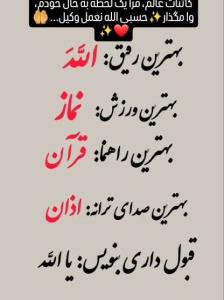 کائنات عالم، مرا یک لحظه به حال خودم،
وا مگذار✨ حسبی الله نعمل وکیل... 🤲
❤️✨
بهترین رفیق: اللهَ
بهترین ورزش: نماز
بهترین راهنما: قرآن
بهترین صدای ترانه: اذان
قبول داری بنویس: یا الله